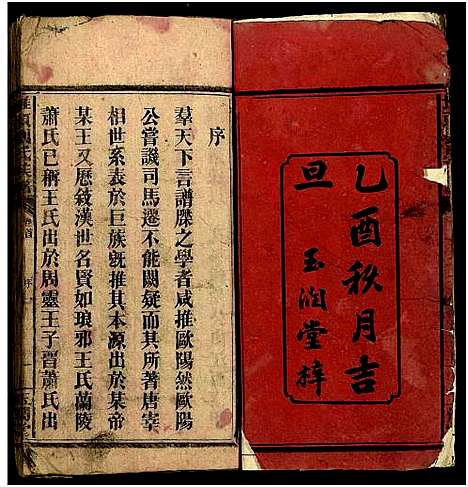 乙酉秋月吉
旦
玉潤堂梓
序
羣天下言譜牒之學者咸推歐陽然歐陽
公嘗譏司馬遷不能闕疑而其所著唐宰
相世系表於巨族旣推其本源出於某帝
某王又歷敘漢世名賢如琅邪王氏蘭陵
蕭氏已稱王氏出於周靈王子晉蕭氏出